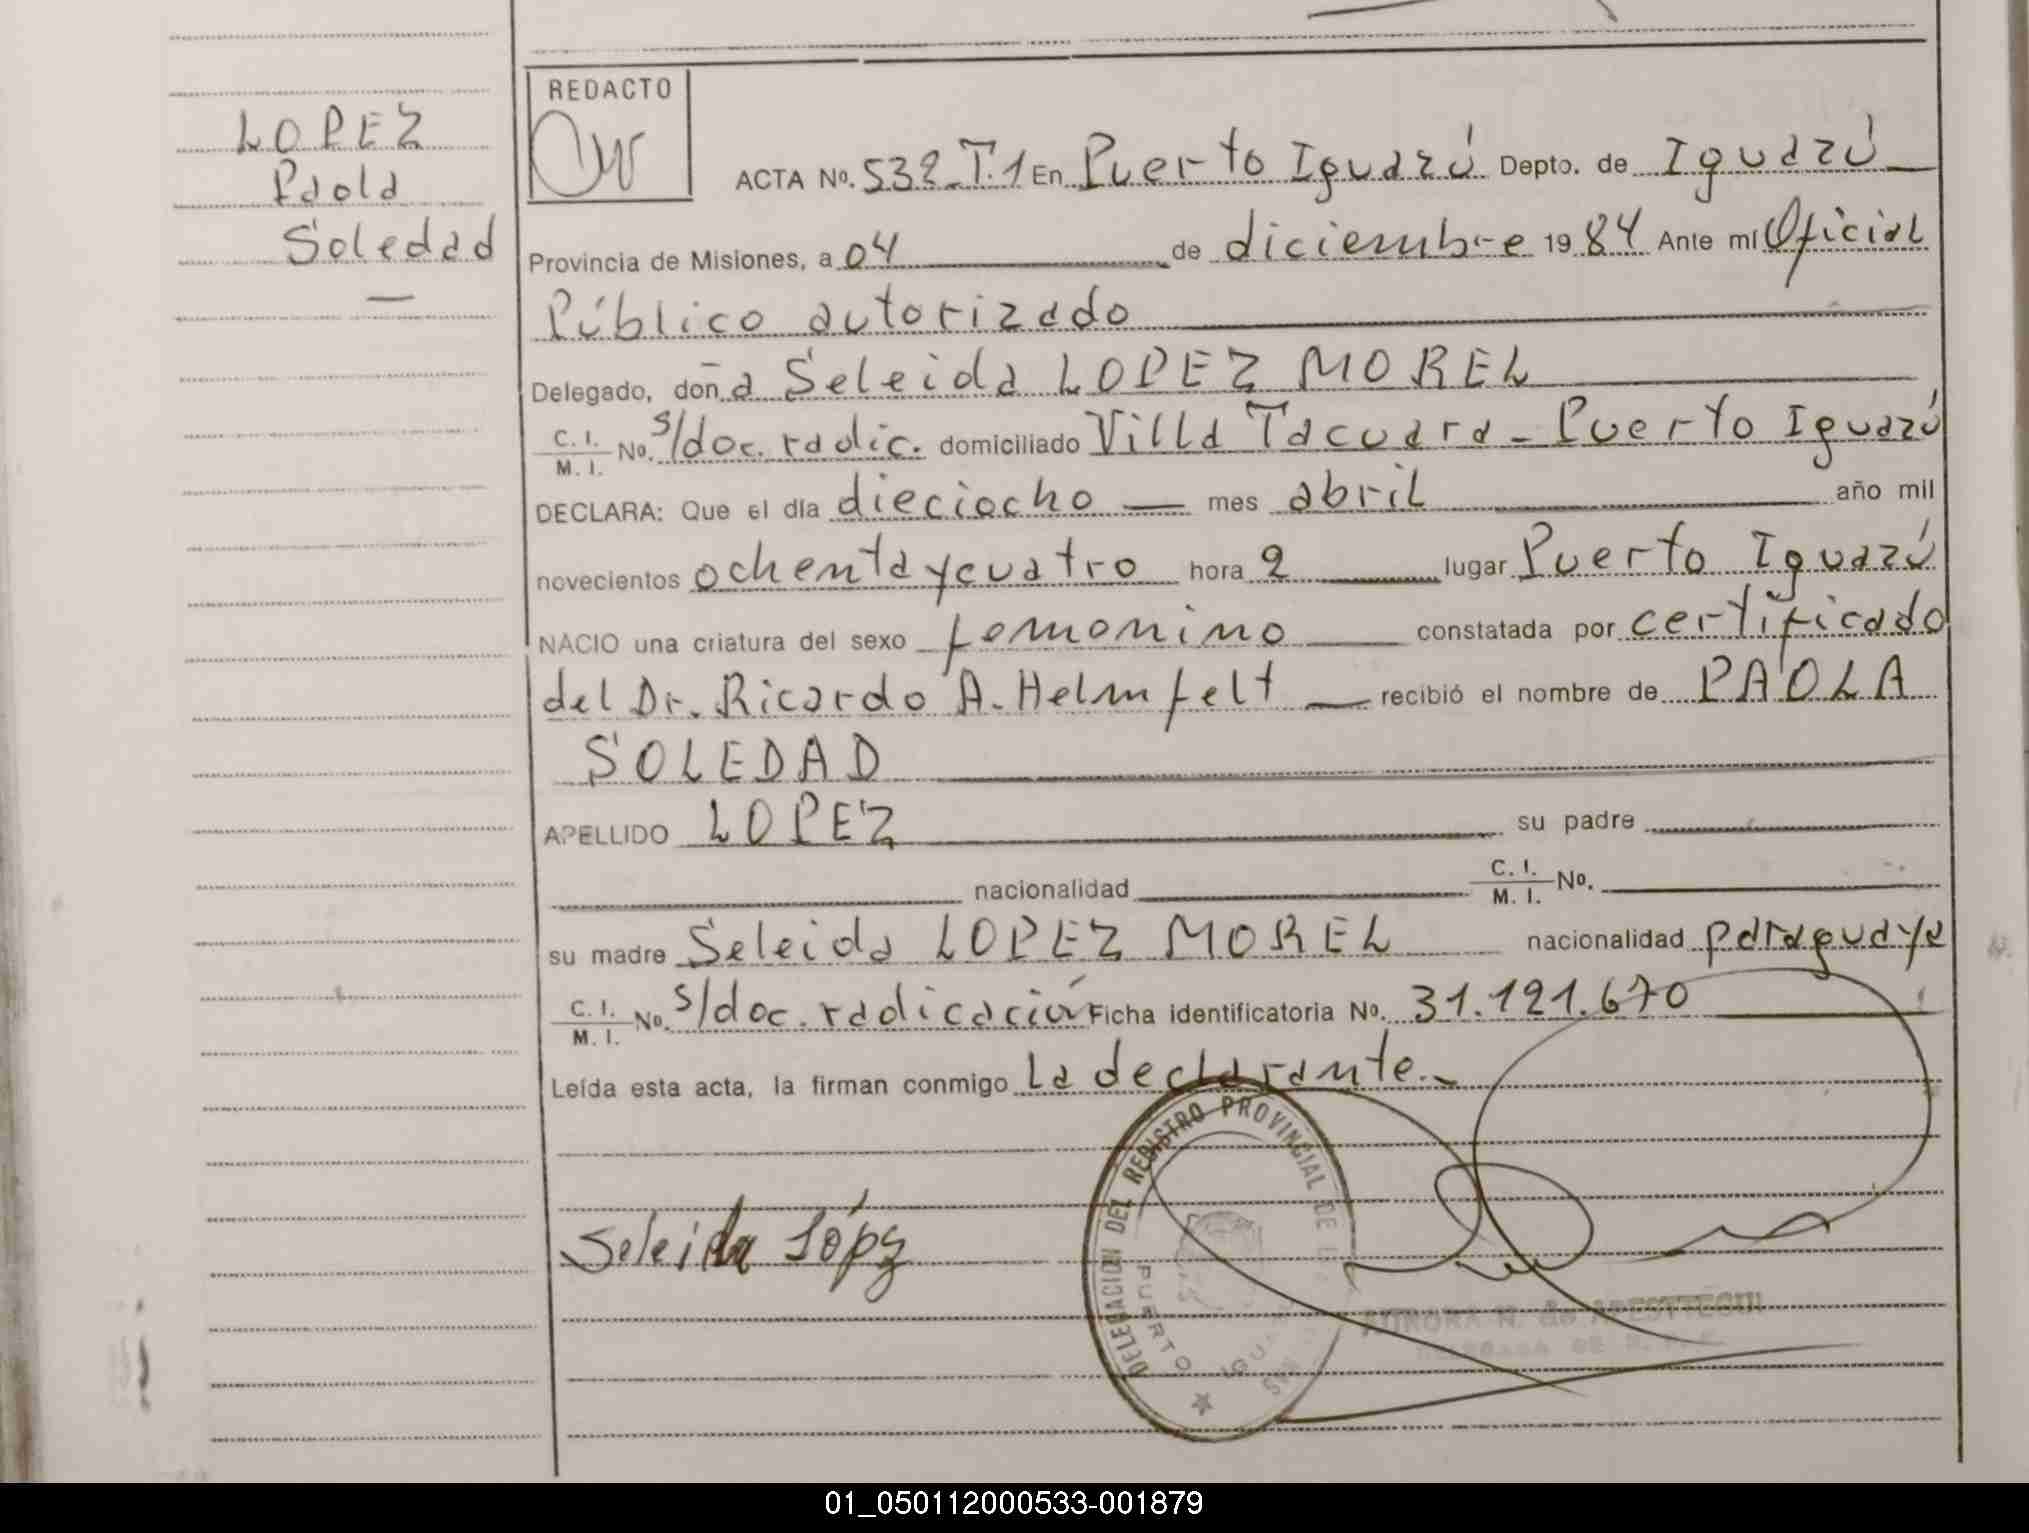 LOPEZ
Paola
Soledad
REDACTO
ACTA No. 532 T.1 En Puerto Iguazú Depto. de Iguazú
Provincia de Misiones, a 04 de diciembre 1984 Ante mí Oficial
Público autorizado
Delegado, doña Seleida LOPEZ MOREL
C. I. / M. I. No. s/doc. radic. domiciliado Villa Tacuara - Puerto Iguazú
DECLARA: Que el día dieciocho — mes abril año mil
novecientos ochenta y cuatro hora 2 lugar Puerto Iguazú
NACIO una criatura del sexo femenino — constatada por certificado
del Dr. Ricardo A. Helmfelt — recibió el nombre de PAOLA
SOLEDAD
APELLIDO LOPEZ su padre
nacionalidad C. I. / M. I. No.
su madre Seleida LOPEZ MOREL nacionalidad paraguaya
C. I. / M. I. No. s/doc. radicación Ficha identificatoria No. 31.121.670
Leída esta acta, la firman conmigo La declarante.-
DELEGACION DEL REGISTRO PROVINCIAL DE
PUERTO IGUAZU
Seleida López
AURORA N. de APESTTEGUI
01_050112000533-001879